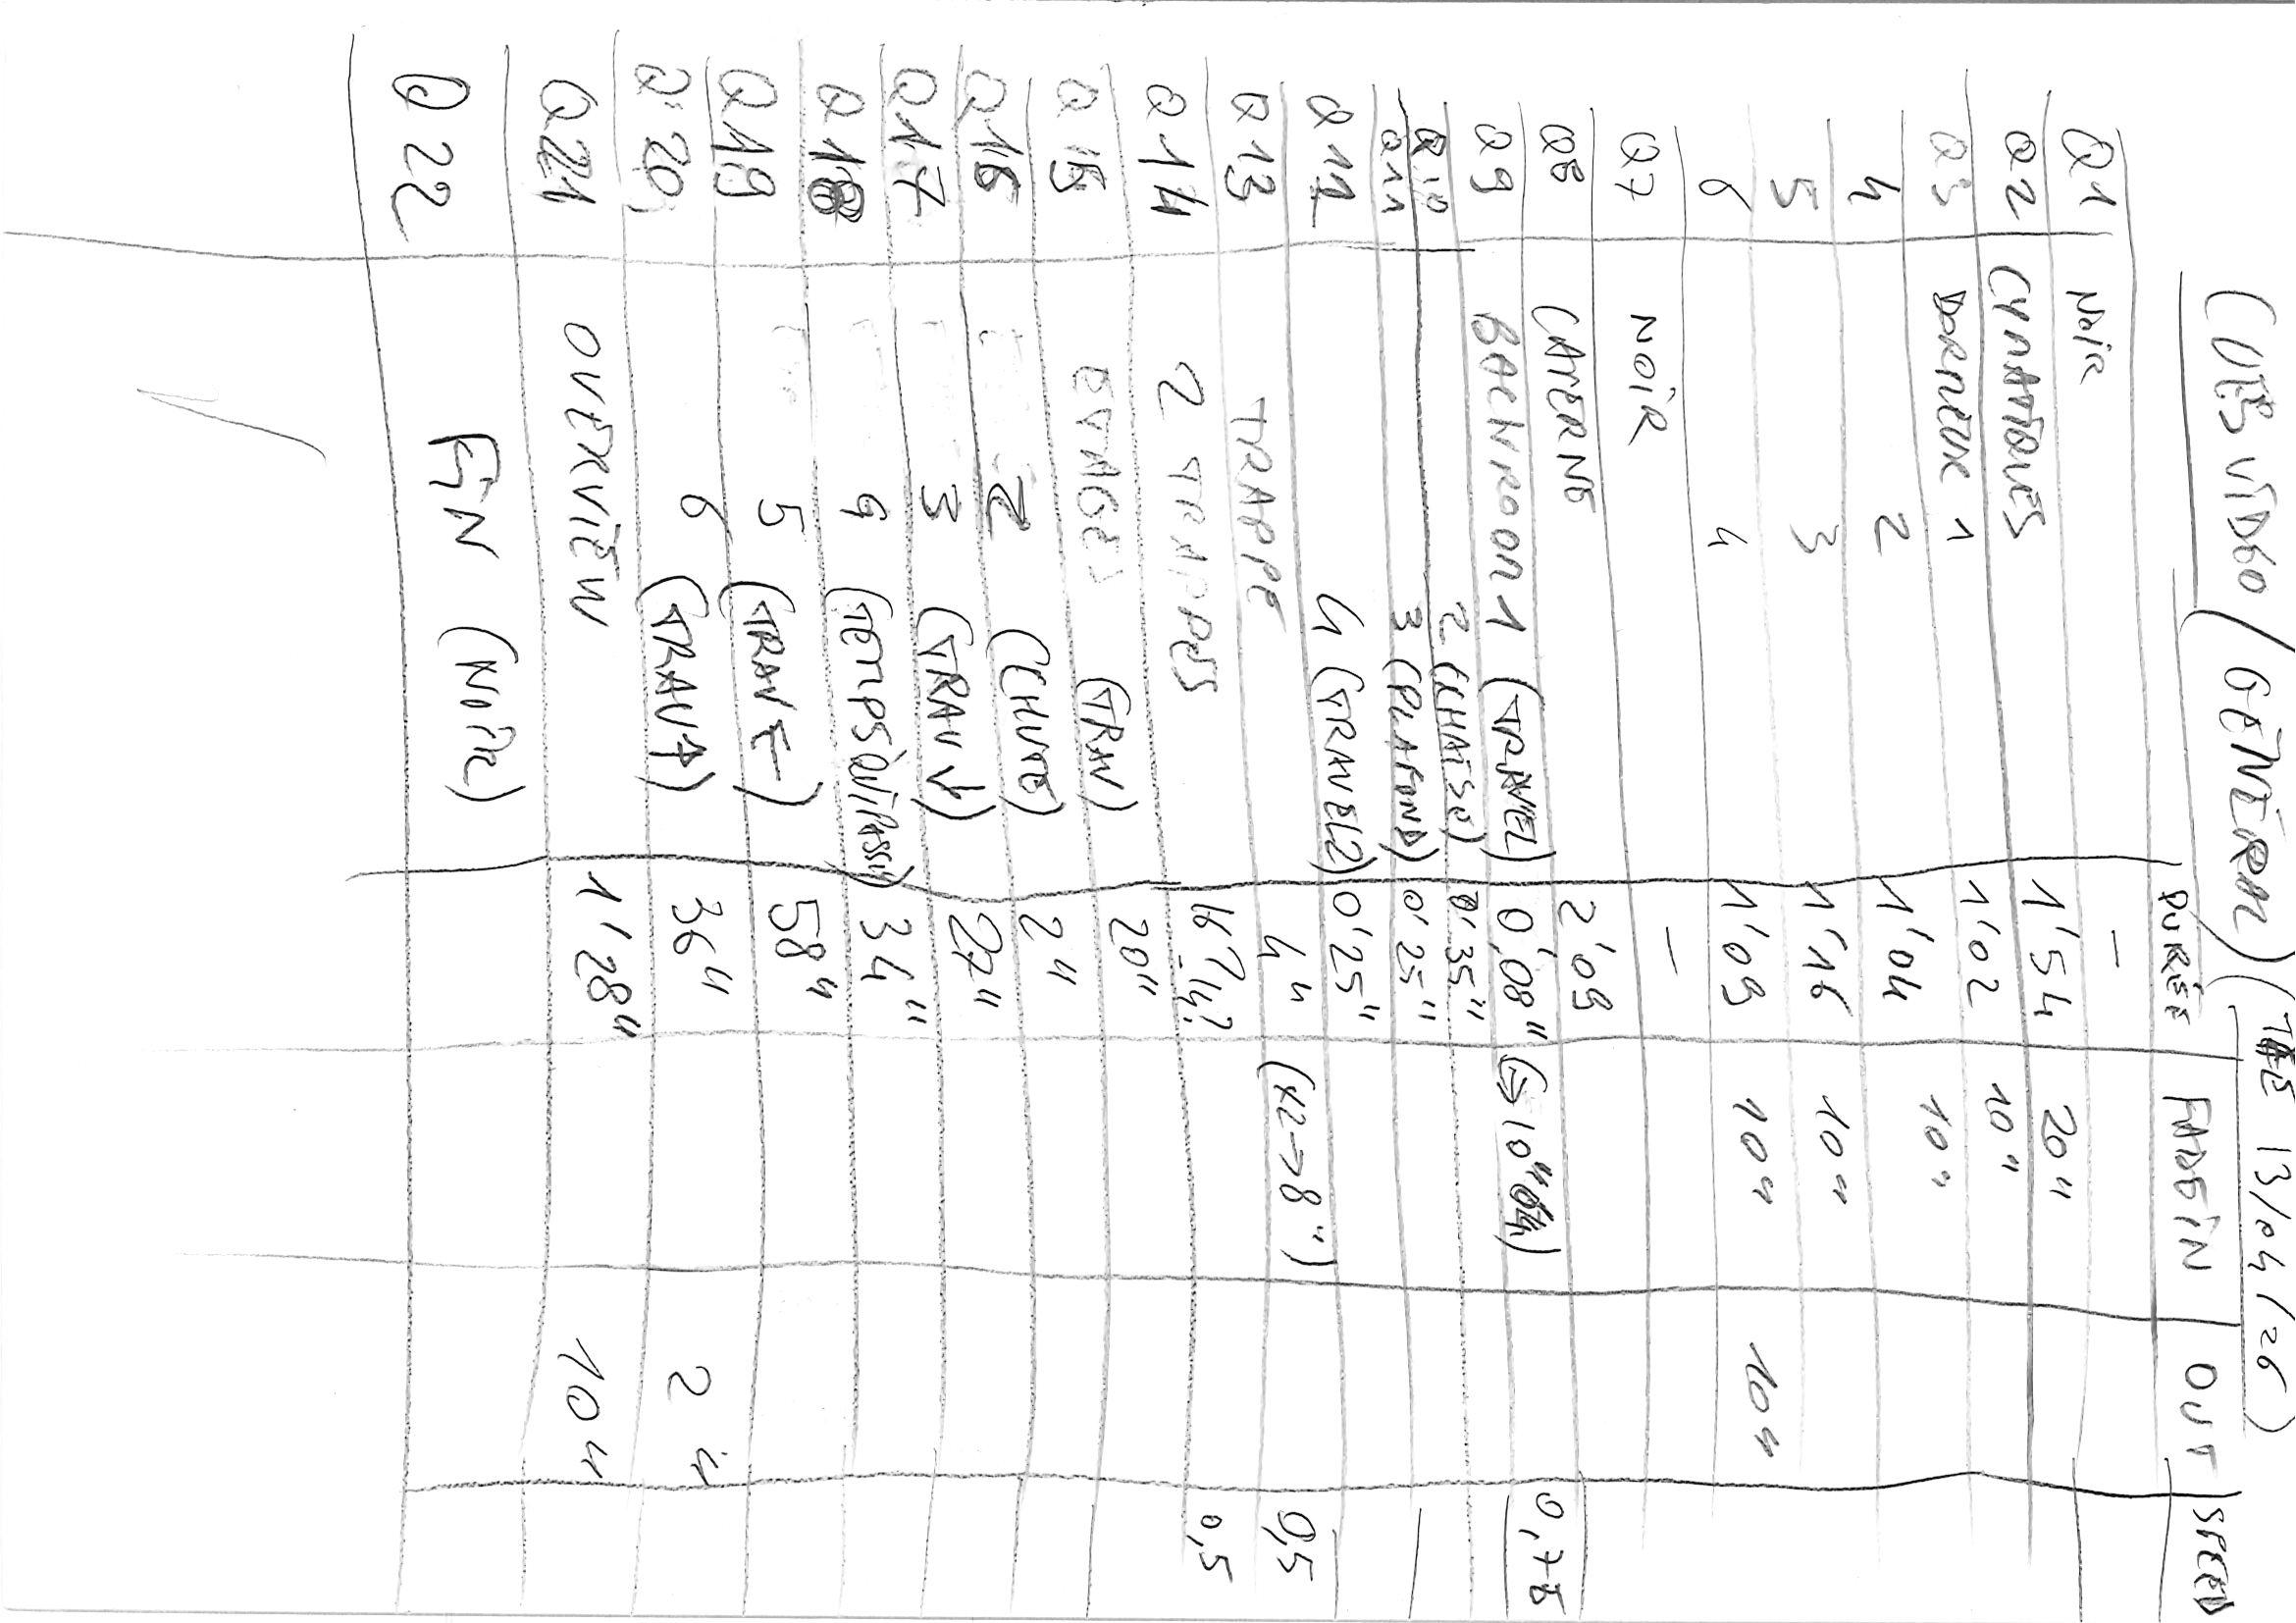 CUES VIDÉO / GÉNÉRAL (13/04/26)
DURÉE FADE IN OUT SPEED
Q1 NOIR –
Q2 CYMATIQUES 1'54 20"
Q3 DORMEUR 1 1'02 10"
4 2 1'04 10"
5 3 1'16 10"
6 4 1'09 10" 10"
Q7 NOIR –
Q8 CAVERNE 2'09
Q9 BACKROOM 1 (TRAVEL) 0'08" (→ 10") 0,75
Q10 2 0'35"
Q11 3 (PLAFOND) 0'25"
Q12 4 (TRAVEL2) 0'25"
Q13 TRAPPE 4" (x2→8") 0,5
Q14 2 TRAPPES 16"? 0,5
Q15 ÉTAGES (TRAV) 20"
Q16 2 (CHUTE) 24
Q17 3 (TRAV ↓) 27"
Q18 4 (TEMPS QUI PASSE) 34"
Q19 5 (TRAV ←) 58"
Q20 6 (TRAV ↑) 36" 2"
Q21 OVERVIEW 1'28" 10"
Q22 FIN (NOIR)